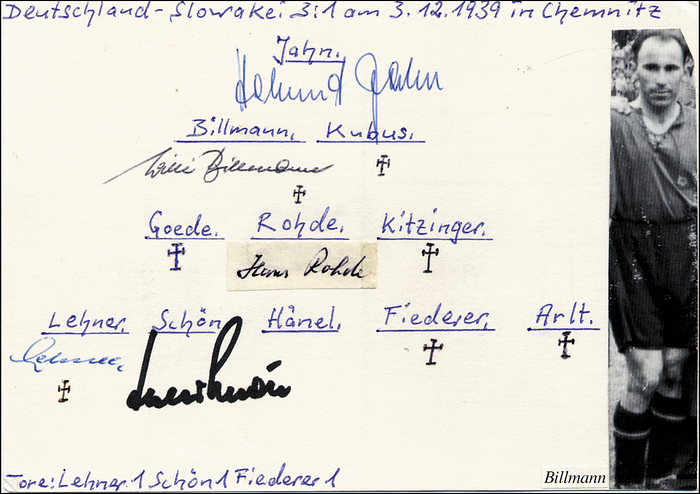 Deutschland - Slowakei 3:1 am 3.12.1939 in Chemnitz
Jahn.
Helmut Jahn
Billmann. Kubus.
Willi Billmann
Goede. Rohde. Kitzinger.
Hans Rohde
Lehner. Schön Hänel. Fiederer. Arlt.
Lehner.
Tore: Lehner 1 Schön 1 Fiederer 1
Billmann